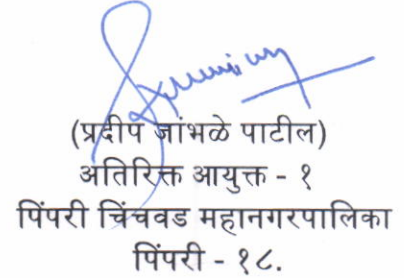 (प्रदीप जांभळे पाटील)
अतिरिक्त आयुक्त - १
पिंपरी चिंचवड महानगरपालिका
पिंपरी - १८.